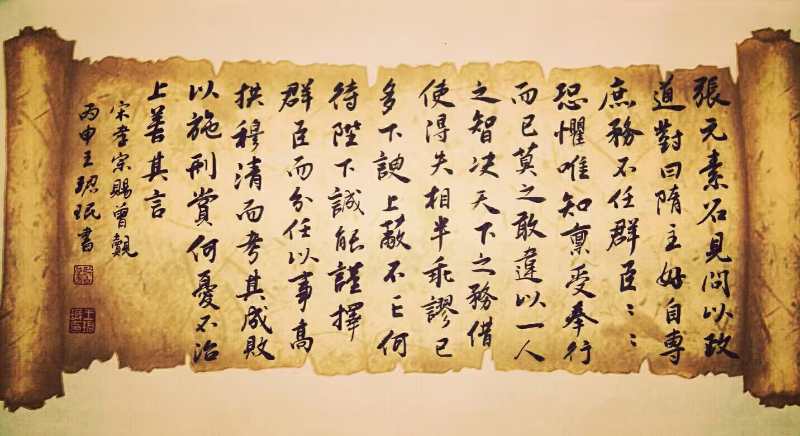 張元素召見問以政
道對曰隋主好自專
庶務不任群臣：：
恐懼唯知稟受奉行
而已莫之敢違以一人
之智决天下之務借
使得失相半乖謬已
多下諛上蔽不亡何
待陛下誠能謹擇
群臣而分任以事高
拱穆清而考其成敗
以施刑賞何憂不治
上善其言
宋孝宗賜曾覿
丙申王珺珉書